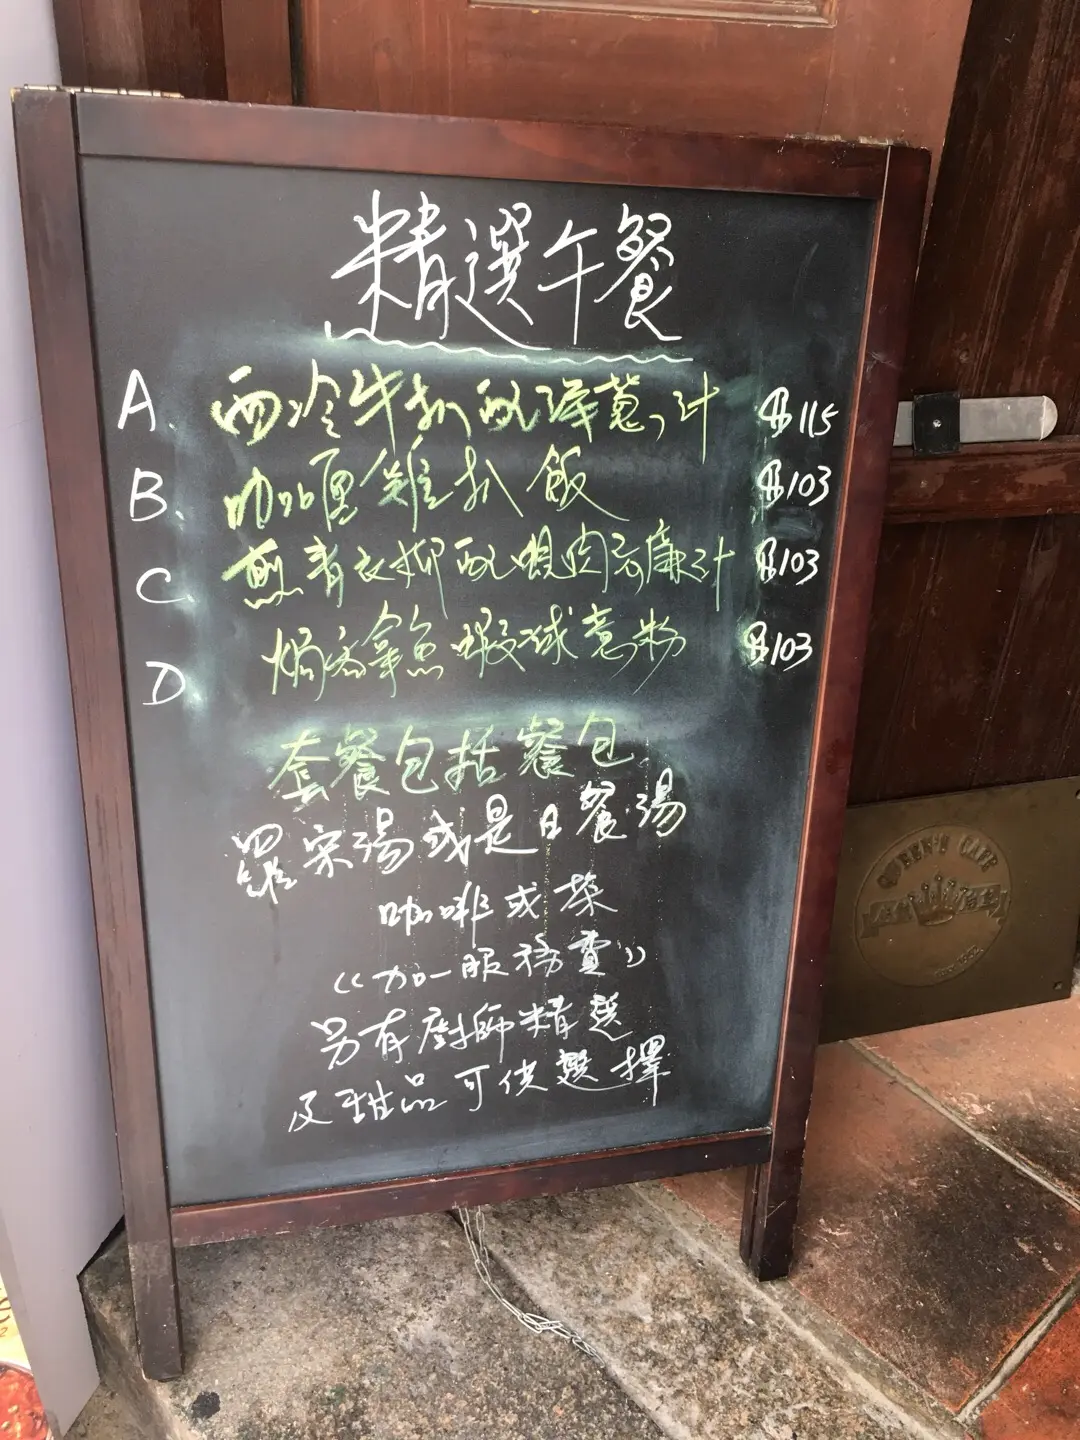 精選午餐
A. 西冷牛扒配洋蔥汁 $115
B. 咖喱雞扒飯 $103
C. 煎青衣柳配蜆肉汁 $103
D 焗吞拿魚意粉 $103
套餐包括餐包
羅宋湯或是日餐湯
咖啡或茶
《加一服務費》
另有廚師精選
及甜品可供選擇
QUEEN'S CAFE